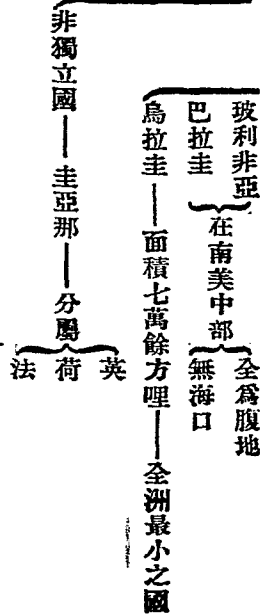 玻利非亞
巴拉圭
在南美中部
全爲腹地
無海口
烏拉圭——面積七萬餘方哩——全洲最小之國
非獨立國——圭亞那——分屬
英
荷
法